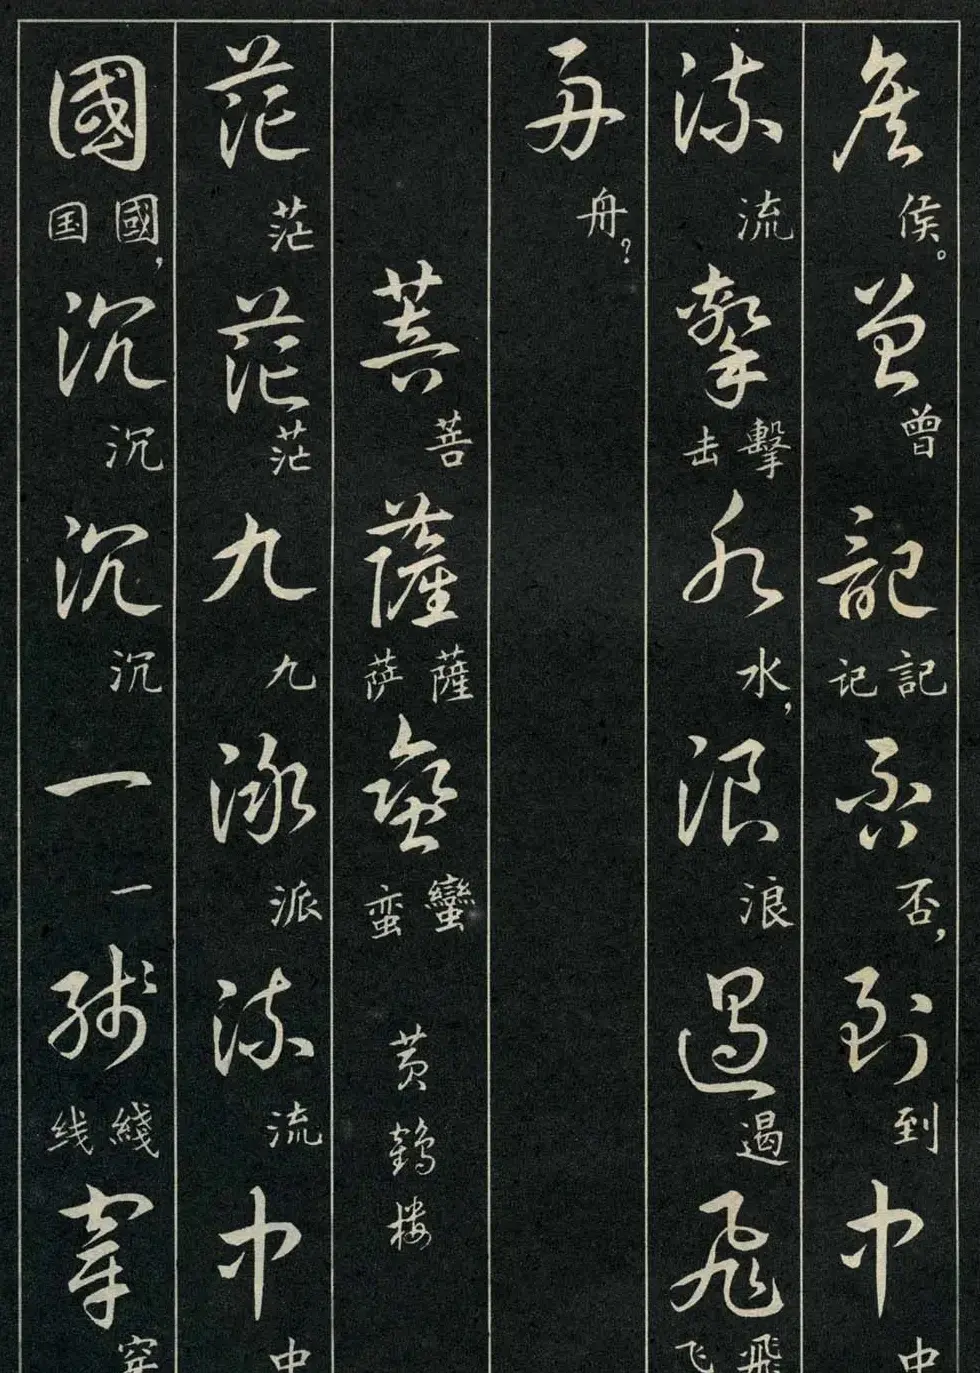 侯侯。曾曾記記记否否，到到中中
流流擊擊击水水，浪浪遏遏飛飛飞
舟舟？
菩菩薩薩萨蠻蠻蛮黄鹤楼
茫茫茫茫九九派派流流中中
國國，国沉沉沉沉一一綫綫线穿穿